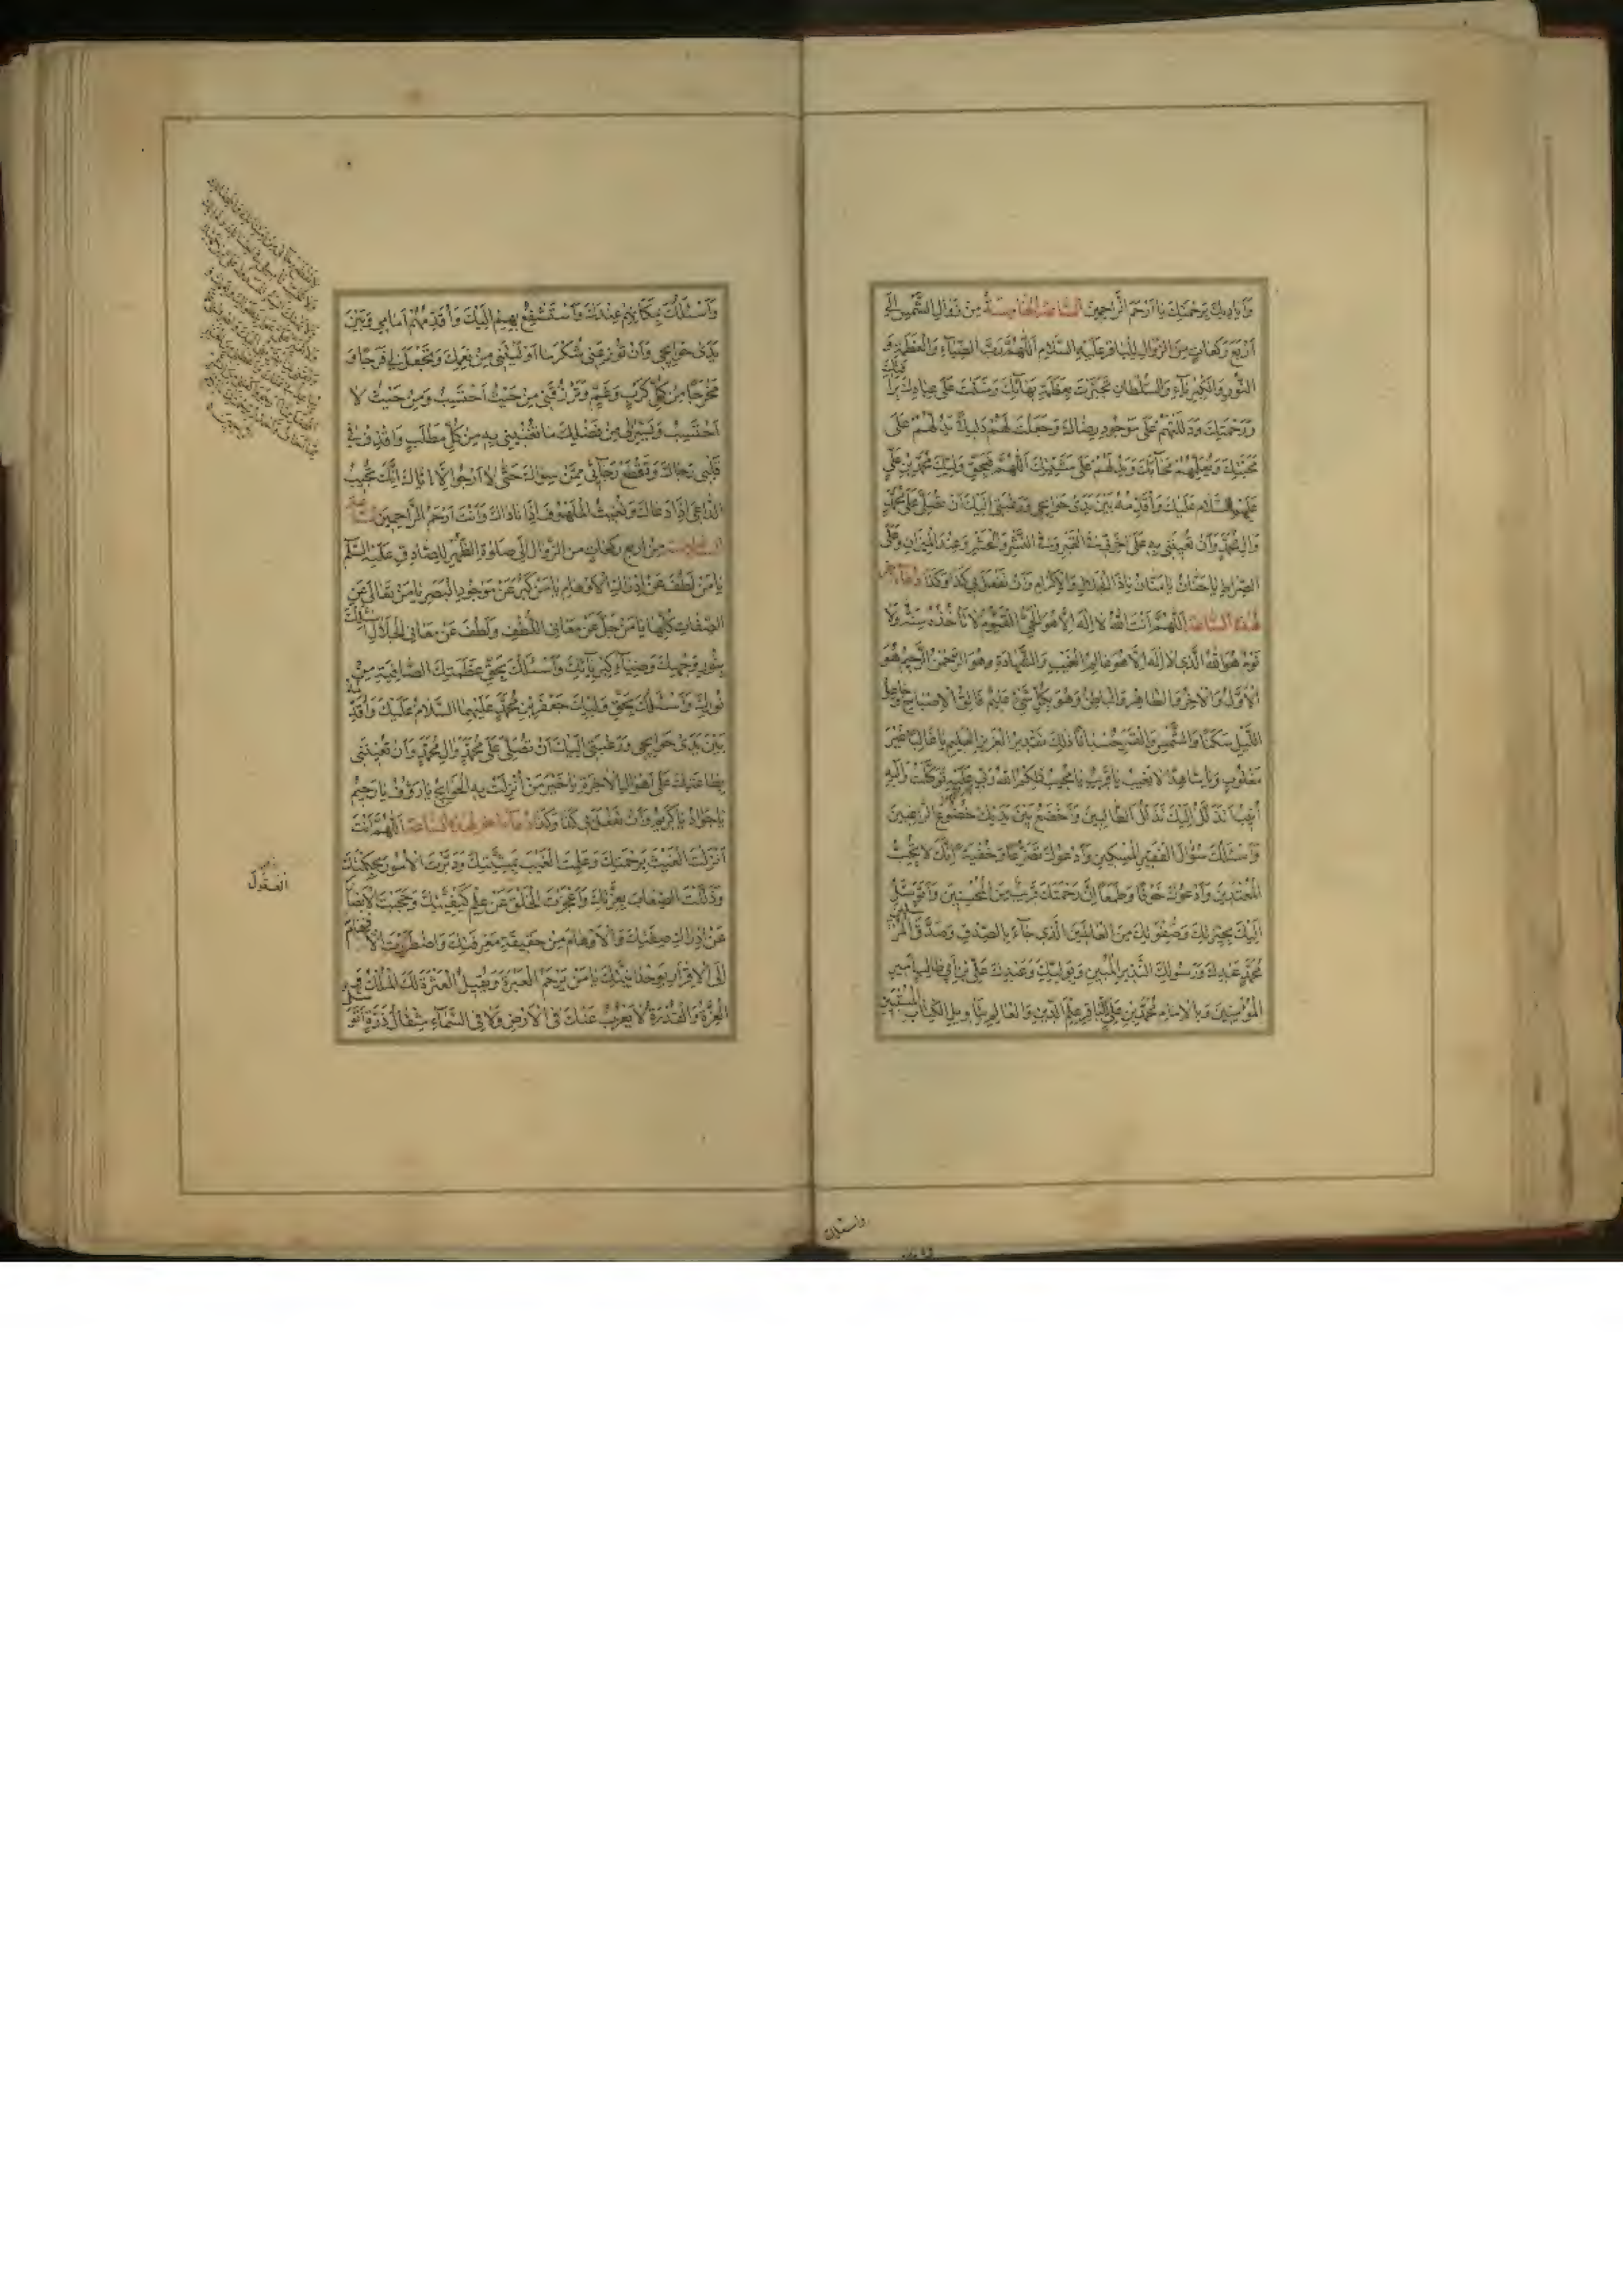 وَاَيَادِيكَ بِرَحْمَتِكَ يَا اَرْحَمَ الرَّاحِمِينَ السَّاعَةُ الْخَامِسَةُ مِنْ زَوَالِ الشَّمْسِ اِلَى
اَرْبَعِ رَكَعَاتٍ مِنَ الزَّوَالِ لِلْبَاقِرِ عَلَيْهِ السَّلَامُ اَللّٰهُمَّ رَبَّ الضِّيَاءِ وَالْعَظَمَةِ وَ
النُّورِ وَالْكِبْرِيَاءِ وَالسُّلْطَانِ تَجَبَّرْتَ بِعَظَمَةِ بَهَائِكَ وَمَنَنْتَ عَلَى عِبَادِكَ بِرَأْفَتِكَ
وَرَحْمَتِكَ وَدَلَلْتَهُمْ عَلَى مَوْجُودِ رِضَاكَ وَجَعَلْتَ لَهُمْ دَلِيلًا يَدُلُّهُمْ عَلَى
مَحَبَّتِكَ وَيُعَلِّمُهُمْ مَحَابَّكَ وَيَدُلُّهُمْ عَلَى مَشِيَّتِكَ اَللّٰهُمَّ فَبِحَقِّ وَلِيِّكَ مُحَمَّدِ بْنِ عَلِيٍّ
عَلَيْهِمَا السَّلَامُ عَلَيْكَ وَاُقَدِّمُهُ بَيْنَ يَدَيْ حَوَائِجِي وَرَغْبَتِي اِلَيْكَ اَنْ تُصَلِّيَ عَلَى مُحَمَّدٍ
وَآلِ مُحَمَّدٍ وَاَنْ تُعِينَنِي بِهِ عَلَى آخِرَتِي فِي الْقَبْرِ وَفِي النَّشْرِ وَالْحَشْرِ وَعِنْدَ الْمِيزَانِ وَعَلَى
الصِّرَاطِ يَا حَنَّانُ يَا مَنَّانُ يَا ذَا الْجَلَالِ وَالْاِكْرَامِ وَاَنْ تَفْعَلَ بِي كَذَا وَكَذَا دُعَاءٌ آخَرُ
لِهَذِهِ السَّاعَةِ اَللّٰهُمَّ اَنْتَ اللهُ لَا اِلَهَ اِلَّا هُوَ الْحَيُّ الْقَيُّومُ لَا تَأْخُذُهُ سِنَةٌ وَلَا
نَوْمٌ هُوَ اللهُ الَّذِي لَا اِلَهَ اِلَّا هُوَ عَالِمُ الْغَيْبِ وَالشَّهَادَةِ وَهُوَ الرَّحْمٰنُ الرَّحِيمُ هُوَ
الْاَوَّلُ وَالْآخِرُ وَالظَّاهِرُ وَالْبَاطِنُ وَهُوَ بِكُلِّ شَيْءٍ عَلِيمٌ فَالِقُ الْاِصْبَاحِ وَجَاعِلُ
اللَّيْلِ سَكَنًا وَالشَّمْسِ وَالْقَمَرِ حُسْبَانًا ذٰلِكَ تَقْدِيرُ الْعَزِيزِ الْعَلِيمِ يَا غَالِبًا غَيْرَ
مَغْلُوبٍ وَيَا شَاهِدًا لَا يَغِيبُ يَا قَرِيبُ يَا مُجِيبُ ذٰلِكُمُ اللهُ رَبِّي عَلَيْهِ تَوَكَّلْتُ وَاِلَيْهِ
اُنِيبُ اَتَذَلَّلُ اِلَيْكَ تَذَلُّلَ الطَّالِبِينَ وَاَخْضَعُ بَيْنَ يَدَيْكَ خُضُوعَ الرَّاغِبِينَ
وَاَسْئَلُكَ سُؤَالَ الْفَقِيرِ الْمِسْكِينِ وَاَدْعُوكَ تَضَرُّعًا وَخُفْيَةً اِنَّكَ لَا تُحِبُّ
الْمُعْتَدِينَ وَاَدْعُوكَ خَوْفًا وَطَمَعًا اِنَّ رَحْمَتَكَ قَرِيبٌ مِنَ الْمُحْسِنِينَ وَاَتَوَسَّلُ
اِلَيْكَ بِخِيَرَتِكَ وَصَفْوَتِكَ مِنَ الْعَالَمِينَ الَّذِي جَاءَ بِالصِّدْقِ وَصَدَّقَ الْمُرْسَلِينَ
مُحَمَّدٍ عَبْدِكَ وَرَسُولِكَ النَّذِيرِ الْمُبِينِ وَبِوَلِيِّكَ وَعَبْدِكَ عَلِيِّ بْنِ اَبِي طَالِبٍ اَمِيرِ
الْمُؤْمِنِينَ وَبِالْاِمَامِ مُحَمَّدِ بْنِ عَلِيٍّ الْبَاقِرِ عِلْمِ الدِّينِ وَالْعَالِمِ بِتَأْوِيلِ الْكِتَابِ الْمُسْتَبِينِ
وَاَسْئَلُكَ
وَاَسْئَلُكَ بِمَكَانِهِمْ عِنْدَكَ وَاَسْتَشْفِعُ بِهِمْ اِلَيْكَ وَاُقَدِّمُهُمْ اَمَامِي وَبَيْنَ
يَدَيْ حَوَائِجِي وَاَنْ تُوزِعَنِي شُكْرَ مَا اَوْلَيْتَنِي مِنْ نِعَمِكَ وَتَجْعَلَ لِي فَرَجًا وَ
مَخْرَجًا مِنْ كُلِّ كَرْبٍ وَغَمٍّ وَتَرْزُقَنِي مِنْ حَيْثُ اَحْتَسِبُ وَمِنْ حَيْثُ لَا
اَحْتَسِبُ وَيَسِّرْ لِي مِنْ فَضْلِكَ مَا تُغْنِينِي بِهِ مِنْ كُلِّ مَطْلَبٍ وَاقْذِفْ فِي
قَلْبِي رَجَاكَ وَاقْطَعْ رَجَائِي مِمَّنْ سِوَاكَ حَتَّى لَا اَرْجُوَ اِلَّا اِيَّاكَ اِنَّكَ تُجِيبُ
الدَّاعِيَ اِذَا دَعَاكَ وَتُغِيثُ الْمَلْهُوفَ اِذَا نَادَاكَ وَاَنْتَ اَرْحَمُ الرَّاحِمِينَ السَّاعَةُ
السَّادِسَةُ مِنْ اَرْبَعِ رَكَعَاتٍ مِنَ الزَّوَالِ اِلَى صَلٰوةِ الظُّهْرِ لِلصَّادِقِ عَلَيْهِ السَّلَامُ
يَا مَنْ لَطُفَ عَنْ اِدْرَاكِ الْاَوْهَامِ يَا مَنْ كَبُرَ عَنْ مَوْجُودِ الْبَصَرِ يَا مَنْ تَعَالَى عَنِ
الصِّفَاتِ كُلِّهَا يَا مَنْ جَلَّ عَنْ مَعَانِي اللُّطْفِ وَلَطُفَ عَنْ مَعَانِي الْجَلَالِ اَسْئَلُكَ
بِنُورِ وَجْهِكَ وَضِيَاءِ كِبْرِيَائِكَ وَاَسْئَلُكَ بِحَقِّ عَظَمَتِكَ الصَّافِيَةِ مِنْ
نُورِكَ وَاَسْئَلُكَ بِحَقِّ وَلِيِّكَ جَعْفَرِ بْنِ مُحَمَّدٍ عَلَيْهِمَا السَّلَامُ عَلَيْكَ وَاُقَدِّمُهُ
بَيْنَ يَدَيْ حَوَائِجِي وَرَغْبَتِي اِلَيْكَ اَنْ تُصَلِّيَ عَلَى مُحَمَّدٍ وَآلِ مُحَمَّدٍ وَاَنْ تُعِينَنِي
بِطَاعَتِكَ عَلَى اَهْوَالِ الْآخِرَةِ يَا خَيْرَ مَنْ اُنْزِلَتْ بِهِ الْحَوَائِجُ يَا رَؤُفُ يَا رَحِيمُ
يَا جَوَادُ يَا كَرِيمُ وَاَنْ تَفْعَلَ بِي كَذَا وَكَذَا دُعَاءٌ آخَرُ لِهَذِهِ السَّاعَةِ اَللّٰهُمَّ اَنْتَ
اَنْزَلْتَ الْغَيْثَ بِرَحْمَتِكَ وَعَلِمْتَ الْغَيْبَ بِمَشِيَّتِكَ وَدَبَّرْتَ الْاُمُورَ بِحِكْمَتِكَ
وَذَلَّلْتَ الصِّعَابَ بِعِزَّتِكَ وَاَعْجَزْتَ الْخَلْقَ عَنْ عِلْمِ كَيْفِيَّتِكَ وَحَجَبْتَ الْاَبْصَارَ
عَنْ اِدْرَاكِ صِفَتِكَ وَالْاَوْهَامَ عَنْ حَقِيقَةِ مَعْرِفَتِكَ وَاضْطَرَرْتَ الْاَفْهَامَ
اِلَى الْاِقْرَارِ بِوَحْدَانِيَّتِكَ يَا مَنْ يَرْحَمُ الْعَبْرَةَ وَيُقِيلُ الْعَثْرَةَ لَكَ الْمُلْكُ وَ
الْعِزَّةُ وَالْقُدْرَةُ لَا يَعْزُبُ عَنْكَ فِي الْاَرْضِ وَلَا فِي السَّمَاءِ مِثْقَالُ ذَرَّةٍ اَتَوَسَّلُ
الْعُقُولَ